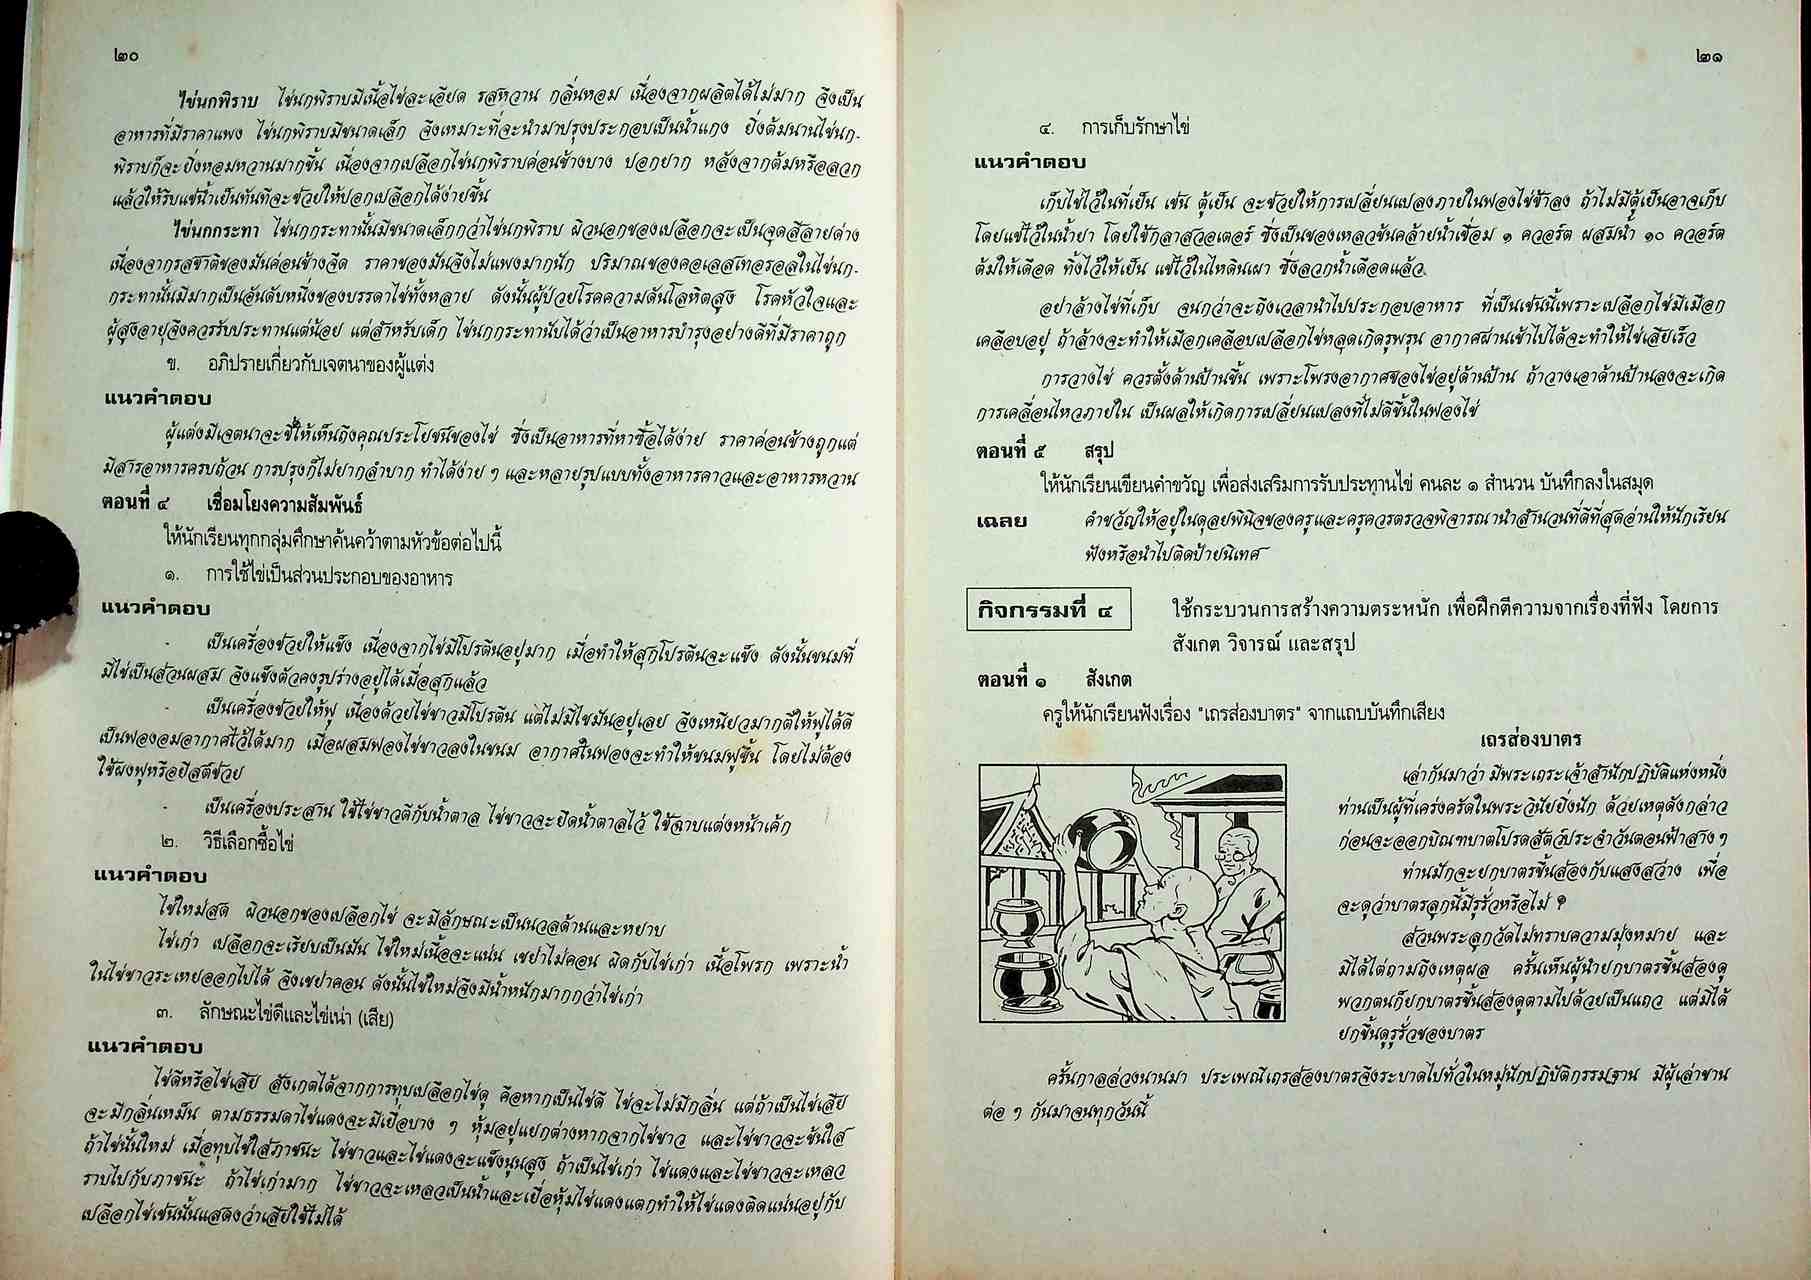 ๒๐
ไข่นกพิราบ ไข่นกพิราบมีเนื้อไข่ละเอียด รสหวาน กลิ่นหอม เนื่องจากผลิตได้ไม่มาก จึงเป็น
อาหารที่มีราคาแพง ไข่นกพิราบมีขนาดเล็ก จึงเหมาะที่จะนำมาปรุงประกอบเป็นน้ำแกง ยิ่งต้มนานไข่นก-
พิราบก็จะยิ่งหอมหวานมากขึ้น เนื่องจากเปลือกไข่นกพิราบค่อนข้างบาง ปอกยาก หลังจากต้มหรือลวก
แล้วให้รีบแช่น้ำเย็นทันทีจะช่วยให้ปอกเปลือกได้ง่ายขึ้น
ไข่นกกระทา ไข่นกกระทานั้นมีขนาดเล็กกว่าไข่นกพิราบ ผิวนอกของเปลือกจะเป็นจุดสีลายด่าง
เนื่องจากรสชาติของมันค่อนข้างจืด ราคาของมันจึงไม่แพงมากนัก ปริมาณของคอเลสเทอรอลในไข่นก-
กระทานั้นมีมากเป็นอันดับหนึ่งของบรรดาไข่ทั้งหลาย ดังนั้นผู้ป่วยโรคความดันโลหิตสูง โรคหัวใจและ
ผู้สูงอายุจึงควรรับประทานแต่น้อย แต่สำหรับเด็ก ไข่นกกระทานับได้ว่าเป็นอาหารบำรุงอย่างดีที่มีราคาถูก
ข. อภิปรายเกี่ยวกับเจตนาของผู้แต่ง
แนวคำตอบ
ผู้แต่งมีเจตนาจะชี้ให้เห็นถึงคุณประโยชน์ของไข่ ซึ่งเป็นอาหารที่หาซื้อได้ง่าย ราคาค่อนข้างถูกแต่
มีสารอาหารครบถ้วน การปรุงก็ไม่ยากลำบาก ทำได้ง่าย ๆ และหลายรูปแบบทั้งอาหารคาวและอาหารหวาน
ตอนที่ ๔ เชื่อมโยงความสัมพันธ์
ให้นักเรียนทุกกลุ่มศึกษาค้นคว้าตามหัวข้อต่อไปนี้
๑. การใช้ไข่เป็นส่วนประกอบของอาหาร
แนวคำตอบ
- เป็นเครื่องช่วยให้แข็ง เนื่องจากไข่มีโปรตีนอยู่มาก เมื่อทำให้สุกโปรตีนจะแข็ง ดังนั้นขนมที่
มีไข่เป็นส่วนผสม จึงแข็งตัวคงรูปร่างอยู่ได้เมื่อสุกแล้ว
- เป็นเครื่องช่วยให้ฟู เนื่องด้วยไข่ขาวมีโปรตีน แต่ไม่มีไขมันอยู่เลย จึงเหนียวมากตีให้ฟูได้ดี
เป็นฟองอมอากาศไว้ได้มาก เมื่อผสมฟองไข่ขาวลงในขนม อากาศในฟองจะทำให้ขนมฟูขึ้น โดยไม่ต้อง
ใช้ผงฟูหรือยีสต์ช่วย
- เป็นเครื่องประสาน ใช้ไข่ขาวตีกับน้ำตาล ไข่ขาวจะยึดน้ำตาลไว้ ใช้ฉาบแต่งหน้าเค้ก
๒. วิธีเลือกซื้อไข่
แนวคำตอบ
ไข่ใหม่สด ผิวนอกของเปลือกไข่ จะมีลักษณะเป็นนวลด้านและหยาบ
ไข่เก่า เปลือกจะเรียบเป็นมัน ไข่ใหม่เนื้อจะแน่น เขย่าไม่คอน ผิดกับไข่เก่า เนื้อโพรก เพราะน้ำ
ในไข่ขาวระเหยออกไปได้ จึงเขย่าคอน ดังนั้นไข่ใหม่จึงมีน้ำหนักมากกว่าไข่เก่า
๓. ลักษณะไข่ดีและไข่เน่า (เสีย)
แนวคำตอบ
ไข่ดีหรือไข่เสีย สังเกตได้จากการทุบเปลือกไข่ดู คือหากเป็นไข่ดี ไข่จะไม่มีกลิ่น แต่ถ้าเป็นไข่เสีย
จะมีกลิ่นเหม็น ตามธรรมดาไข่แดงจะมีเยื่อบาง ๆ หุ้มอยู่แยกต่างหากจากไข่ขาว และไข่ขาวจะข้นใส
ถ้าไข่นั้นใหม่ เมื่อทุบไข่ใส่ภาชนะ ไข่ขาวและไข่แดงจะแข็งนูนสูง ถ้าเป็นไข่เก่า ไข่แดงและไข่ขาวจะเหลว
ราบไปกับภาชนะ ถ้าไข่เก่ามาก ไข่ขาวจะเหลวเป็นน้ำและเยื่อหุ้มไข่แดงแตกทำให้ไข่แดงติดแน่นอยู่กับ
เปลือกไข่เช่นนั้นแสดงว่าเสียใช้ไม่ได้
๒๑
๔. การเก็บรักษาไข่
แนวคำตอบ
เก็บไข่ไว้ในที่เย็น เช่น ตู้เย็น จะช่วยให้การเปลี่ยนแปลงภายในฟองไข่ช้าลง ถ้าไม่มีตู้เย็นอาจเก็บ
โดยแช่ไว้ในน้ำยา โดยใช้กลาสวอเตอร์ ซึ่งเป็นของเหลวข้นคล้ายน้ำเชื่อม ๑ ควอร์ต ผสมน้ำ ๑๐ ควอร์ต
ต้มให้เดือด ทิ้งไว้ให้เย็น แช่ไว้ในไหดินเผา ซึ่งลวกน้ำเดือดแล้ว
อย่าล้างไข่ที่เก็บ จนกว่าจะถึงเวลานำไปประกอบอาหาร ที่เป็นเช่นนี้เพราะเปลือกไข่มีเมือก
เคลือบอยู่ ถ้าล้างจะทำให้เมือกเคลือบเปลือกไข่หลุดเกิดรูพรุน อากาศผ่านเข้าไปได้จะทำให้ไข่เสียเร็ว
การวางไข่ ควรตั้งด้านป้านขึ้น เพราะโพรงอากาศของไข่อยู่ด้านป้าน ถ้าวางเอาด้านป้านลงจะเกิด
การเคลื่อนไหวภายใน เป็นผลให้เกิดการเปลี่ยนแปลงที่ไม่ดีขึ้นในฟองไข่
ตอนที่ ๕ สรุป
ให้นักเรียนเขียนคำขวัญ เพื่อส่งเสริมการรับประทานไข่ คนละ ๑ สำนวน บันทึกลงในสมุด
เฉลย คำขวัญให้อยู่ในดุลยพินิจของครูและครูควรตรวจพิจารณานำสำนวนที่ดีที่สุดอ่านให้นักเรียน
ฟังหรือนำไปติดป้ายนิเทศ
กิจกรรมที่ ๔ ใช้กระบวนการสร้างความตระหนัก เพื่อฝึกตีความจากเรื่องที่ฟัง โดยการ
สังเกต วิจารณ์ และสรุป
ตอนที่ ๑ สังเกต
ครูให้นักเรียนฟังเรื่อง "เถรส่องบาตร" จากแถบบันทึกเสียง
เถรส่องบาตร
เล่ากันมาว่า มีพระเถระเจ้าสำนักปฏิบัติแห่งหนึ่ง
ท่านเป็นผู้ที่เคร่งครัดในพระวินัยยิ่งนัก ด้วยเหตุดังกล่าว
ก่อนจะออกบิณฑบาตโปรดสัตว์ประจำวันตอนฟ้าสาง ๆ
ท่านมักจะยกบาตรขึ้นส่องกับแสงสว่าง เพื่อ
จะดูว่าบาตรลูกนี้มีรูรั่วหรือไม่ ?
ส่วนพระลูกวัดไม่ทราบความมุ่งหมาย และ
มิได้ไต่ถามถึงเหตุผล ครั้นเห็นผู้นำยกบาตรขึ้นส่องดู
พวกตนก็ยกบาตรขึ้นส่องดูตามไปด้วยเป็นแถว แต่มิได้
ยกขึ้นดูรูรั่วของบาตร
ครั้นกาลล่วงนานมา ประเพณีเถรส่องบาตรจึงระบาดไปทั่วในหมู่นักปฏิบัติกรรมฐาน มีผู้เล่าขาน
ต่อ ๆ กันมาจนทุกวันนี้